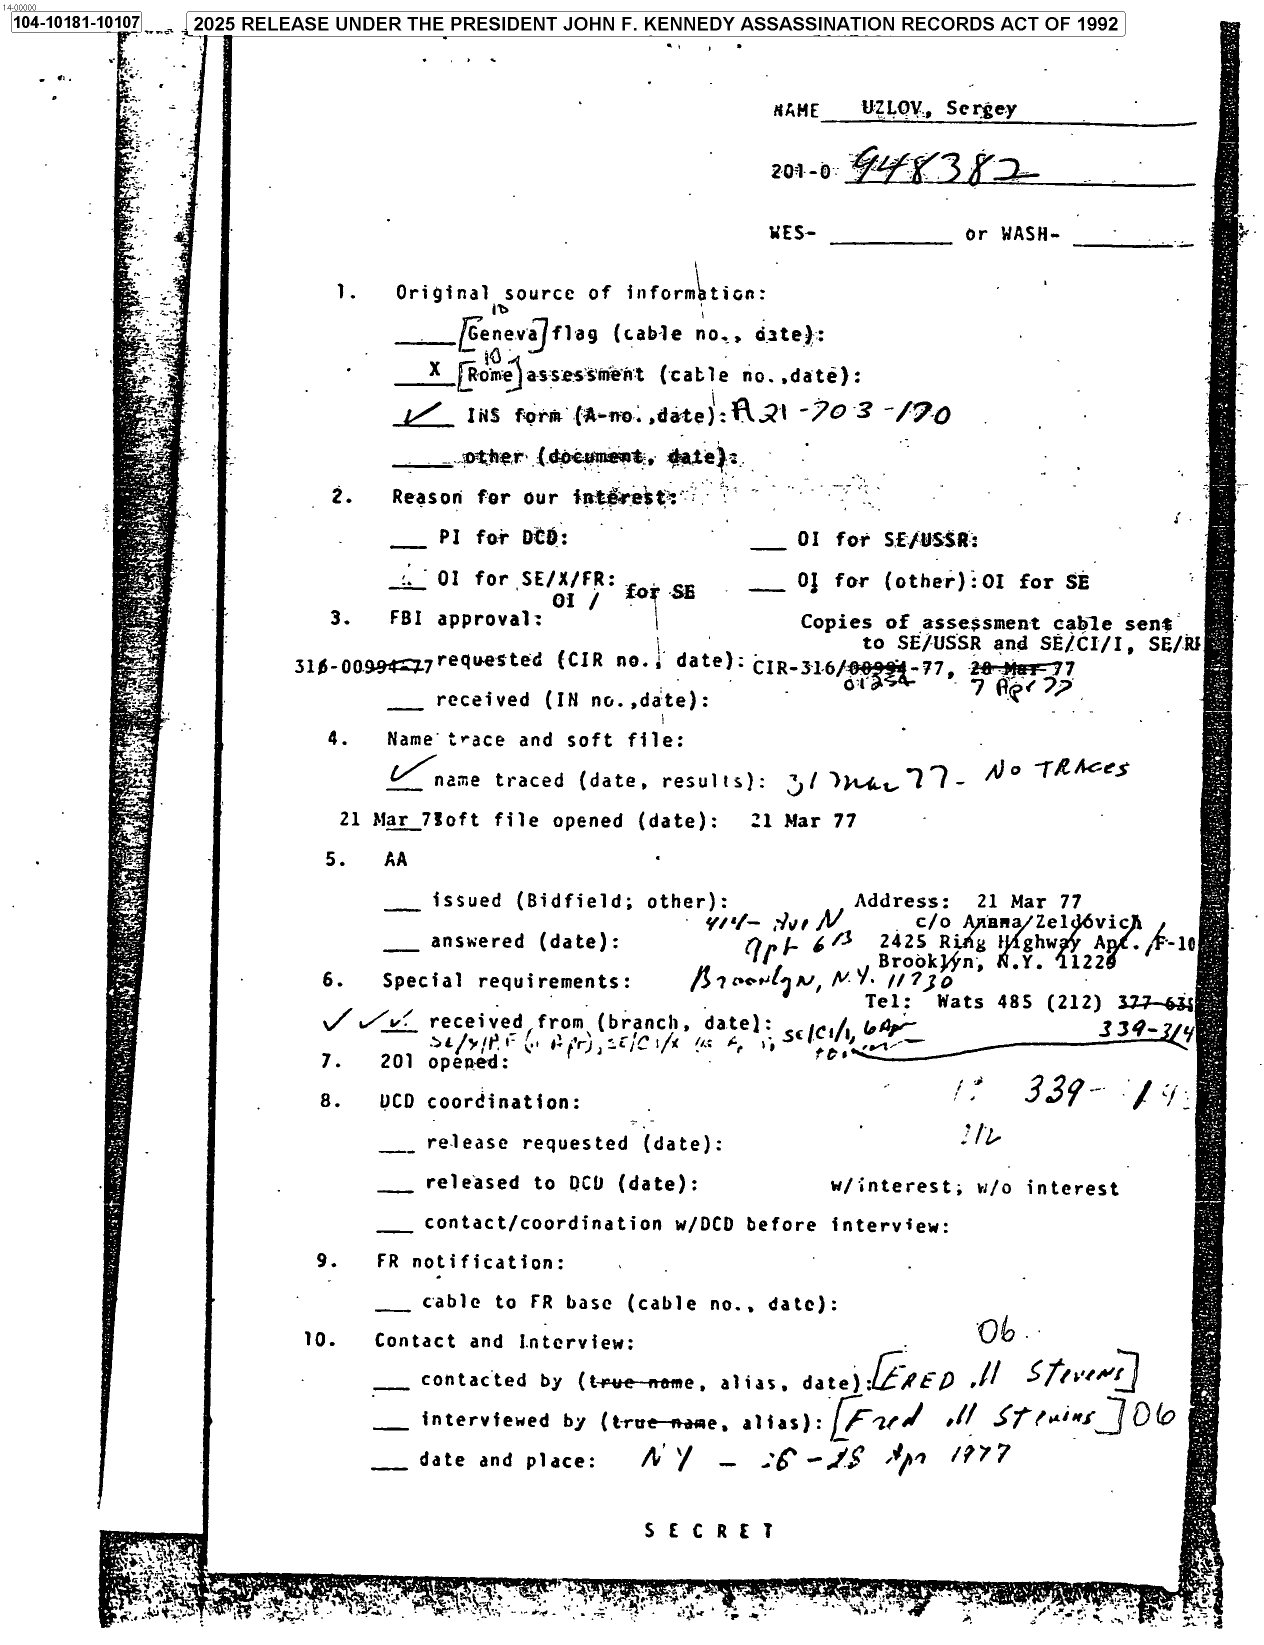 14-00000
104-10181-10107
2025 RELEASE UNDER THE PRESIDENT JOHN F. KENNEDY ASSASSINATION RECORDS ACT OF 1992
NAME UZLOV, Sergey
201-0 948382
WES- or WASH-
1. Original source of information:
10
[Geneva] flag (cable no., date):
10
X [Rome] assessment (cable no.,date):
✓ INS form (A-no.,date): A21-703-170
other (document, date):
2. Reason for our interest:
PI for DCD: OI for SE/USSR:
OI for SE/X/FR: for SE OI for (other):OI for SE
OI /
3. FBI approval: Copies of assessment cable sent
to SE/USSR and SE/CI/I, SE/RR
316-00994-77 requested (CIR no., date): CIR-316/00994-77, 28 Mar 77
01252 7 Apr 77
received (IN no.,date):
4. Name trace and soft file:
✓ name traced (date, results): 31 Mar 77 - No TRACES
21 Mar 77 soft file opened (date): 21 Mar 77
5. AA
issued (Bidfield; other): Address: 21 Mar 77
414- Ave N c/o Zeldovich
answered (date): Apt 6B 2425 Ring Highway Apt. F-10
Brooklyn, N.Y. 11229
6. Special requirements: Brooklyn, N.Y. 11230
Tel: Wats 485 (212) 377-635
✓ ✓ ✓ received from (branch, date): SE/CI/I, 6 Apr 339-314
7. 201 opened:
339-
8. DCD coordination:
212
release requested (date):
released to DCD (date): w/interest; w/o interest
contact/coordination w/DCD before interview:
9. FR notification:
cable to FR base (cable no., date):
10. Contact and Interview: 06
contacted by (true name, alias, date): [FRED M Stevens]
interviewed by (true name, alias): [Fred M Stevens] 06
date and place: NY - Apr 1977
SECRET